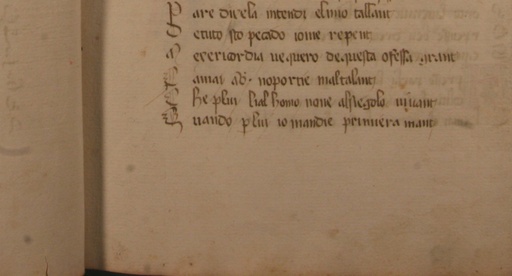 P are diuela intendi el mio tallant
S e tuto sto pecado io me repent
M ererordia ue quero de questa ofessa grant
S a mai ad no portie maltalant
C he plui lial homo none al segolo uiuant
Q uando p lui io mandie primiera mant